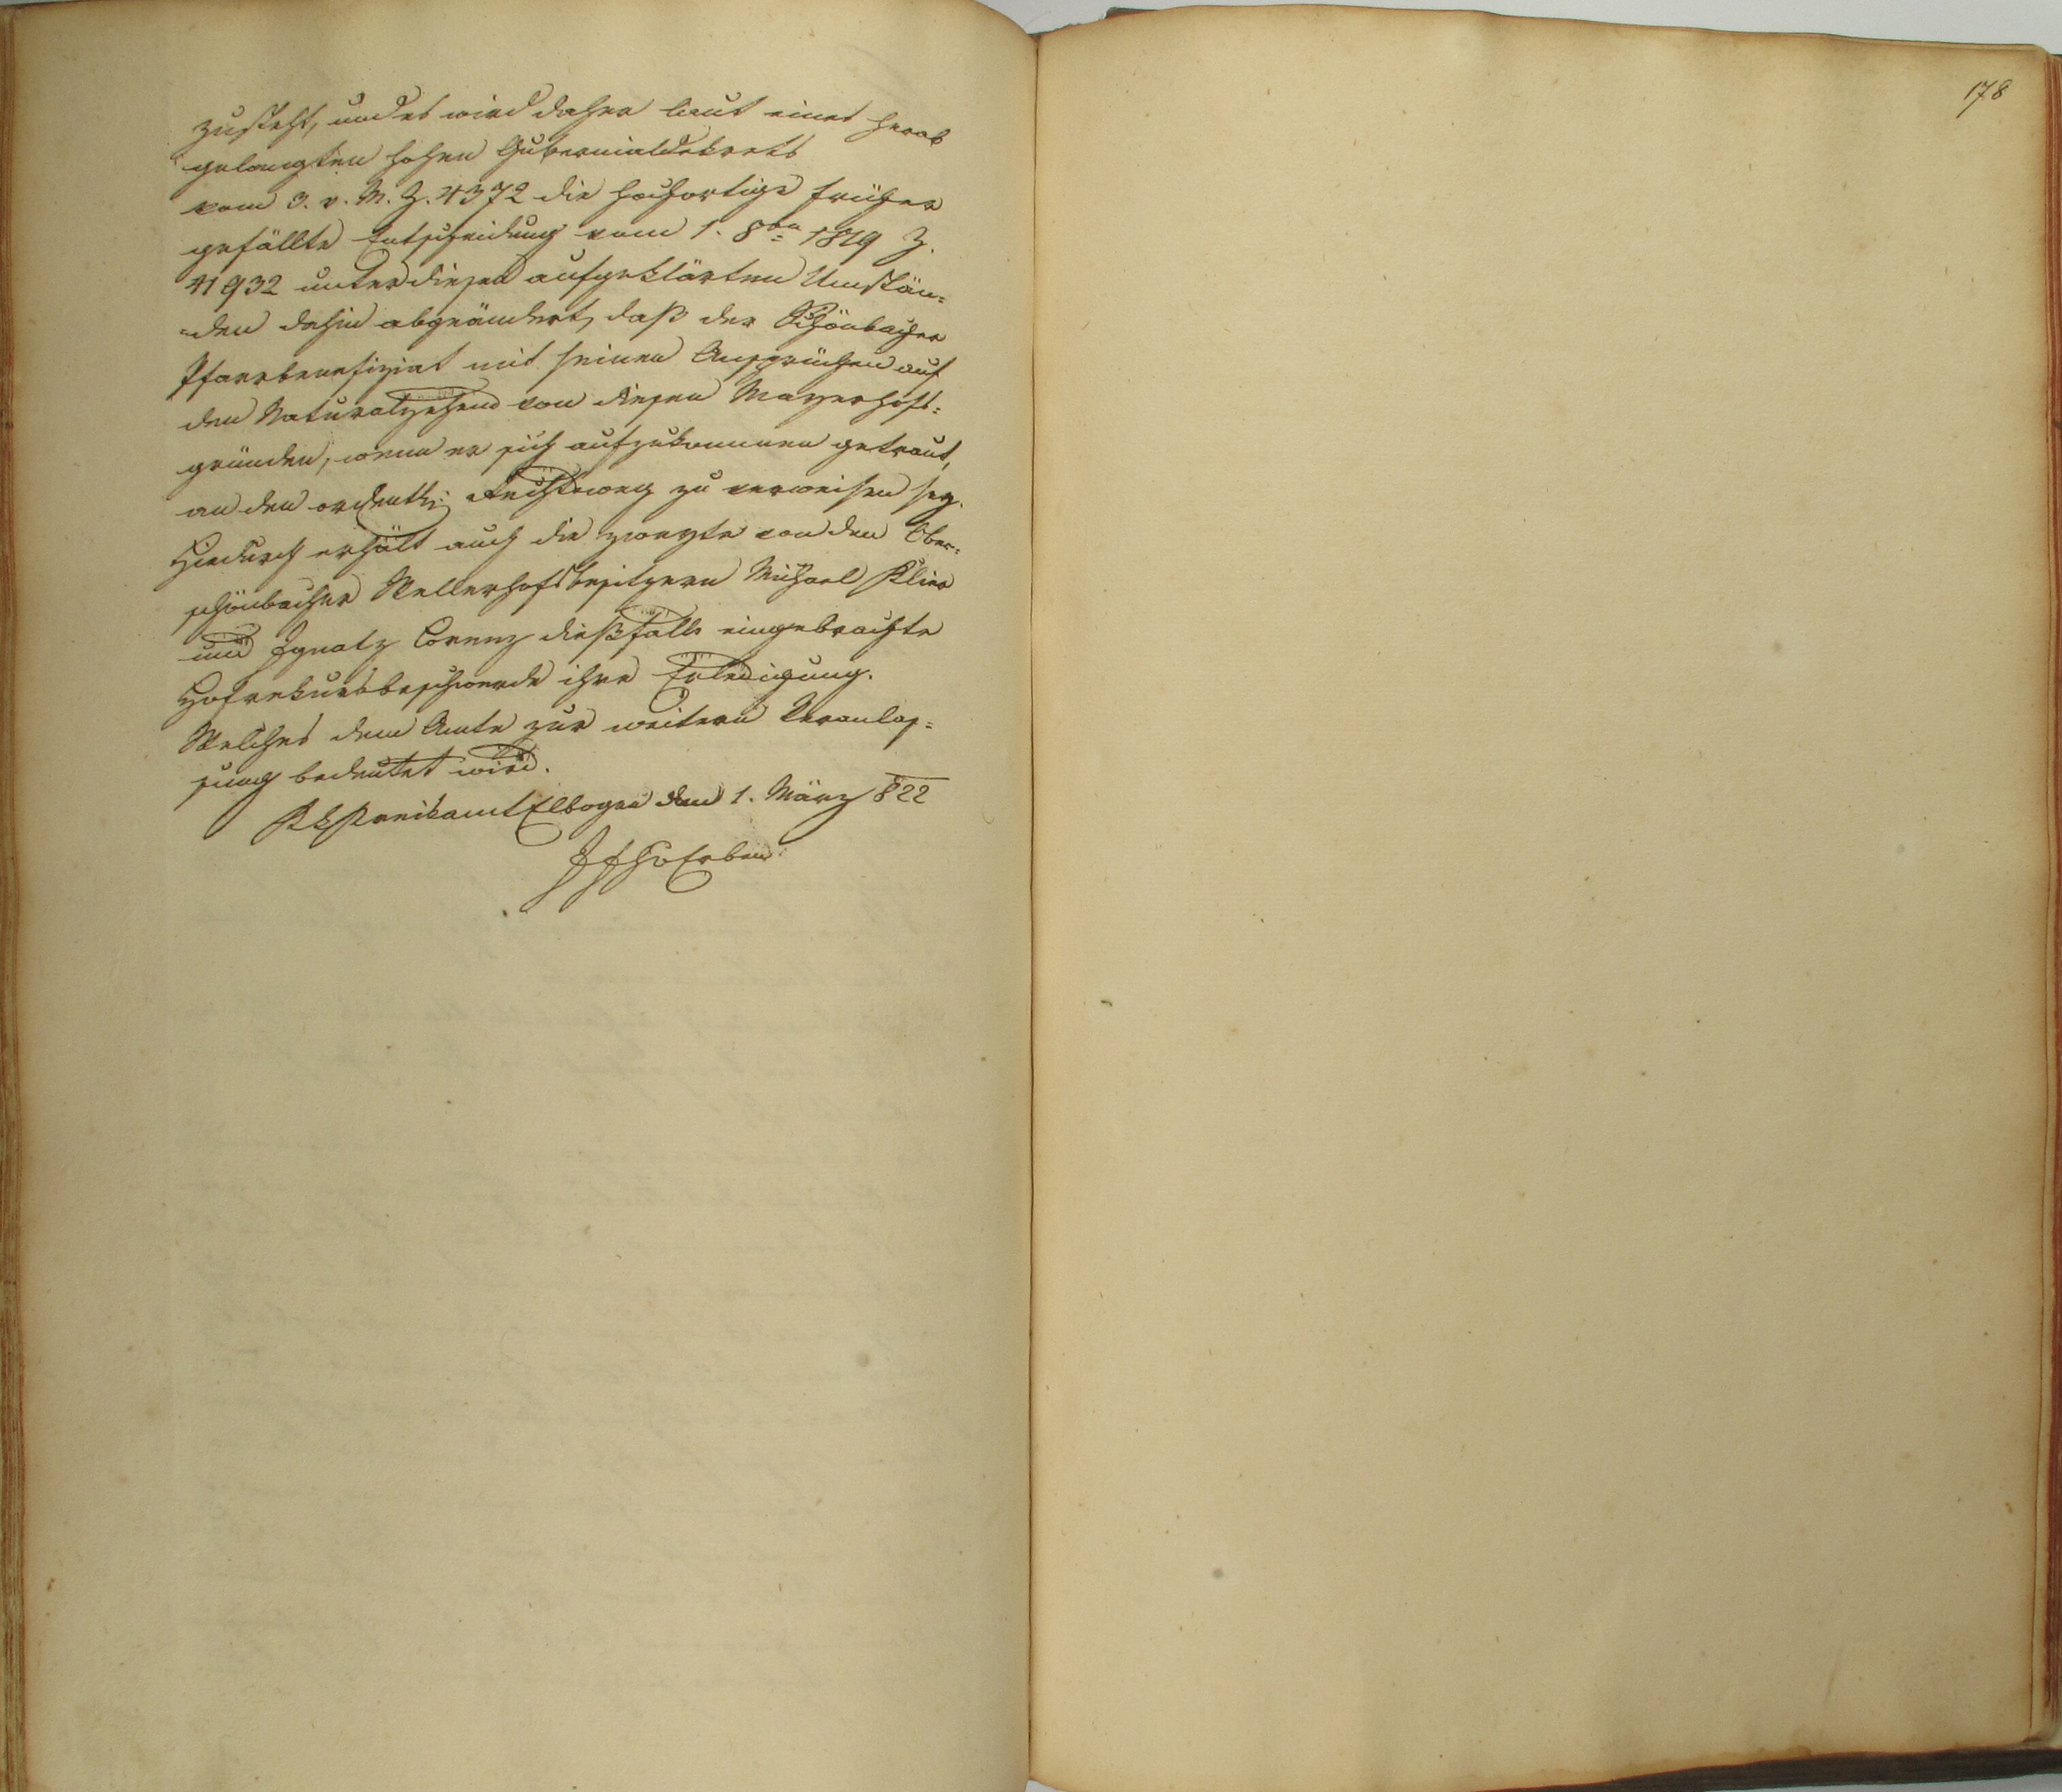 zusteht, und es wird daher laut eines herab
gelangten hohen Gubernialdekrets
vom 3. v. M. Z. 4372 die hochortige früher
gefällte Entscheidung vom 1. 8ber 1819 Z.
41932 unter diesen aufgeklärten Umstän=
=den dahin abgeändert, daß der Schönbacher
Pfarrbenefiziat mit seinen Ansprüchen auf
den Naturalzehend von diesen Mayerhofs=
gründen, wenn er sich aufzukommen getraut,
an den ordentl: Rechtsweg zu verweisen sey.
Hiedurch erhält auch die zweyte von den Ober=
schönbacher Kellerhofsbesitzern Michael Klier
und Ignatz Lorenz dießfalls eingebrachte
Hofrekursbeschwerde ihre Erledigung.
Welches dem Amte zur weitern Veranlas=
sung bedeutet wird.
KK Kreisamt Elbogen den 1. März 822
Erben
178